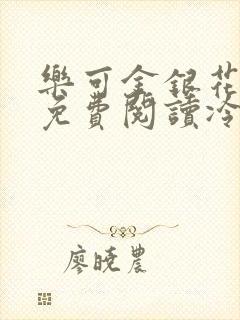 樂可金銀花
免費閱讀冷
廖曉農